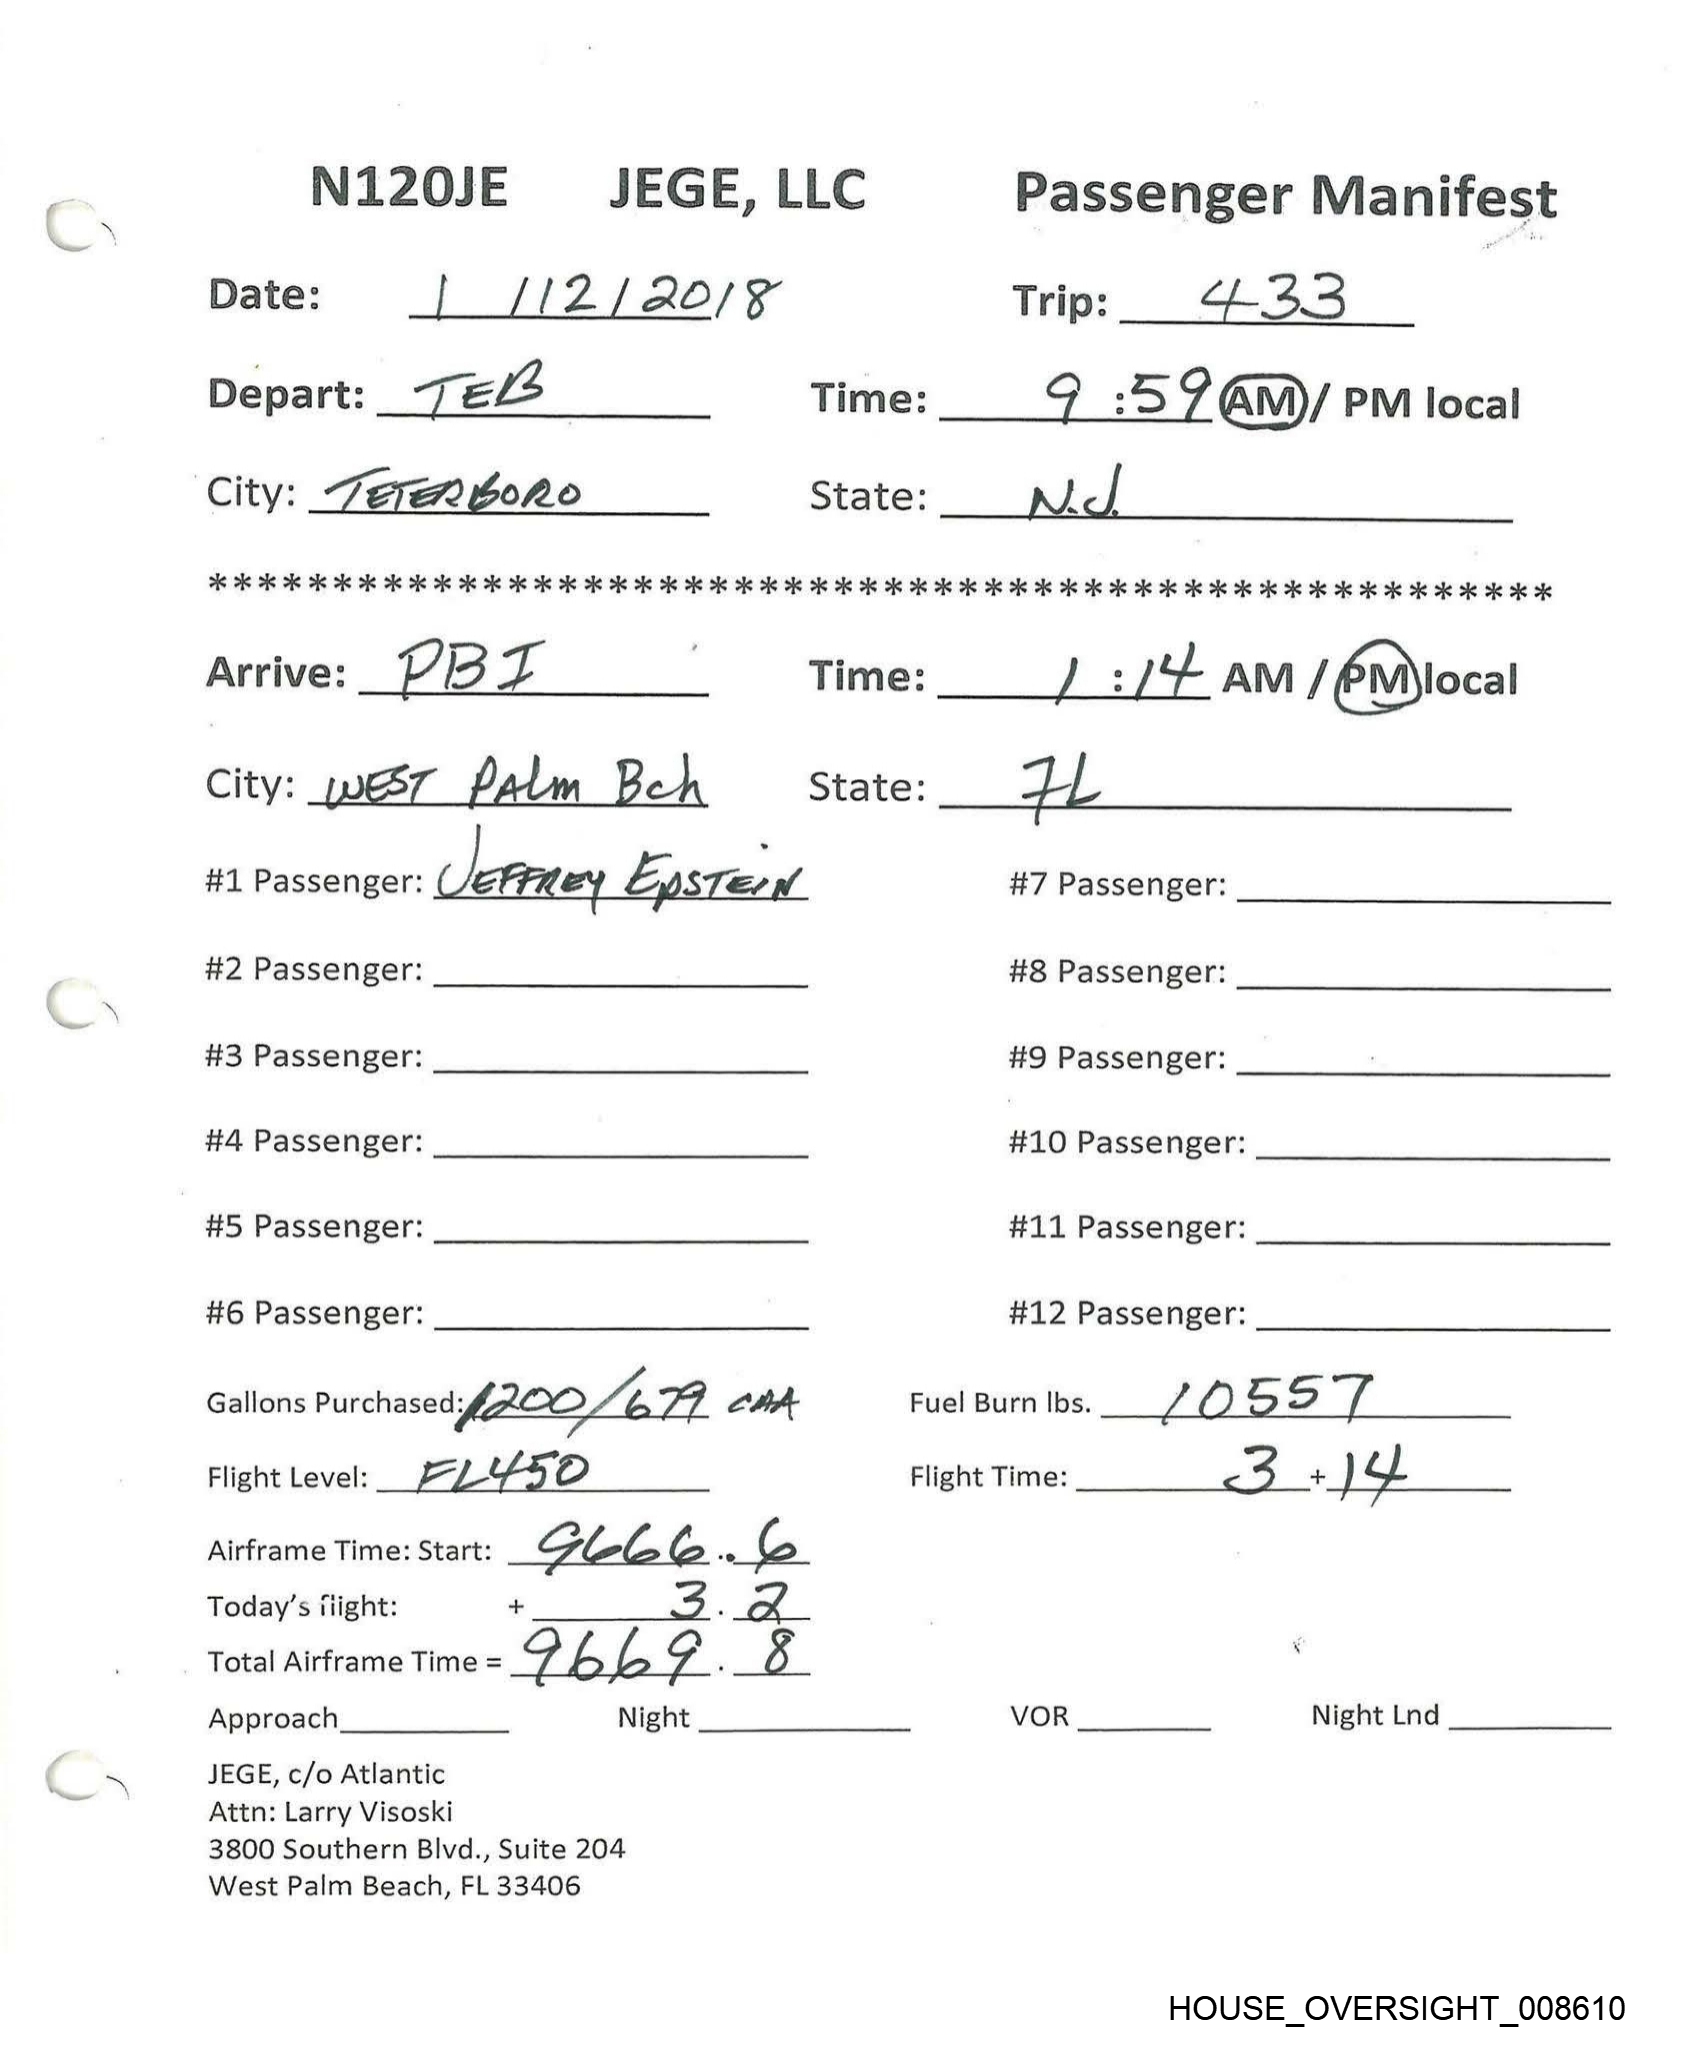 N120JE JEGE, LLC Passenger Manifest
Date: 1/12/2018 Trip: 433
Depart: TEB Time: 9:59 AM / PM local
City: TETERBORO State: N.J.
******************************************************
Arrive: PBI Time: 1:14 AM / PM local
City: WEST PAlm Bch State: FL
#1 Passenger: JEFFREY EpSTEIN #7 Passenger:
#2 Passenger: #8 Passenger:
#3 Passenger: #9 Passenger:
#4 Passenger: #10 Passenger:
#5 Passenger: #11 Passenger:
#6 Passenger: #12 Passenger:
Gallons Purchased: 1200/679 CAA Fuel Burn lbs. 10557
Flight Level: FL450 Flight Time: 3 + 14
Airframe Time: Start: 9666.6
Today's flight: + 3.2
Total Airframe Time = 9669.8
Approach Night VOR Night Lnd
JEGE, c/o Atlantic
Attn: Larry Visoski
3800 Southern Blvd., Suite 204
West Palm Beach, FL 33406
HOUSE_OVERSIGHT_008610